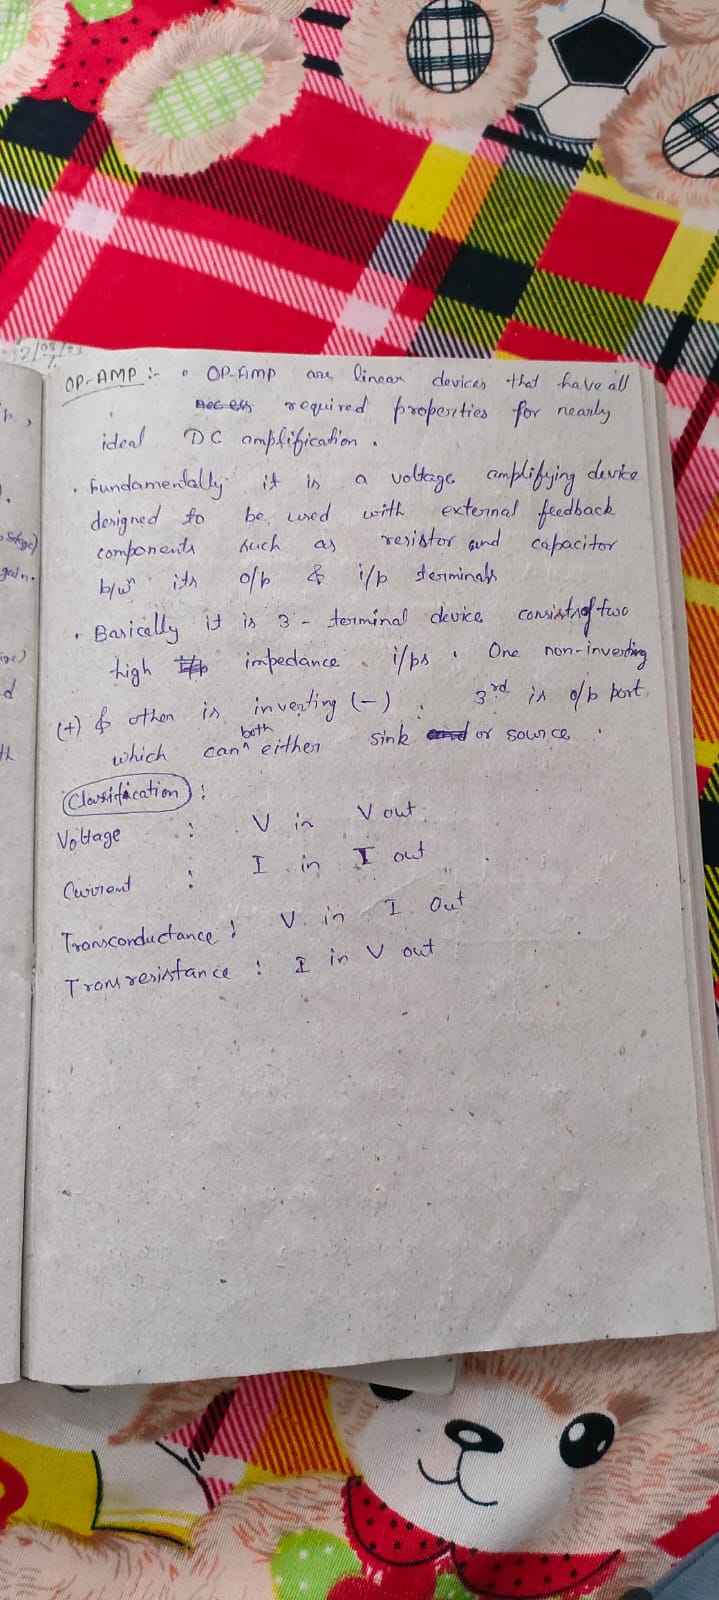 OP-AMP :- • OP-Amp are linear devices that have all
required properties for nearly
ideal DC amplification.
• Fundamentally it is a voltage amplifying device
designed to be used with external feedback
components such as resistor and capacitor
b/wn its o/p & i/p terminals
• Basically it is 3 - terminal device consists of two
high impedance i/ps. One non-inverting
(+) & other is inverting (-) . 3rd is o/p port
which can both either sink or source.
Classification :
Voltage : V in V out
Current : I in I out
Transconductance : V in I Out
Transresistance : I in V out